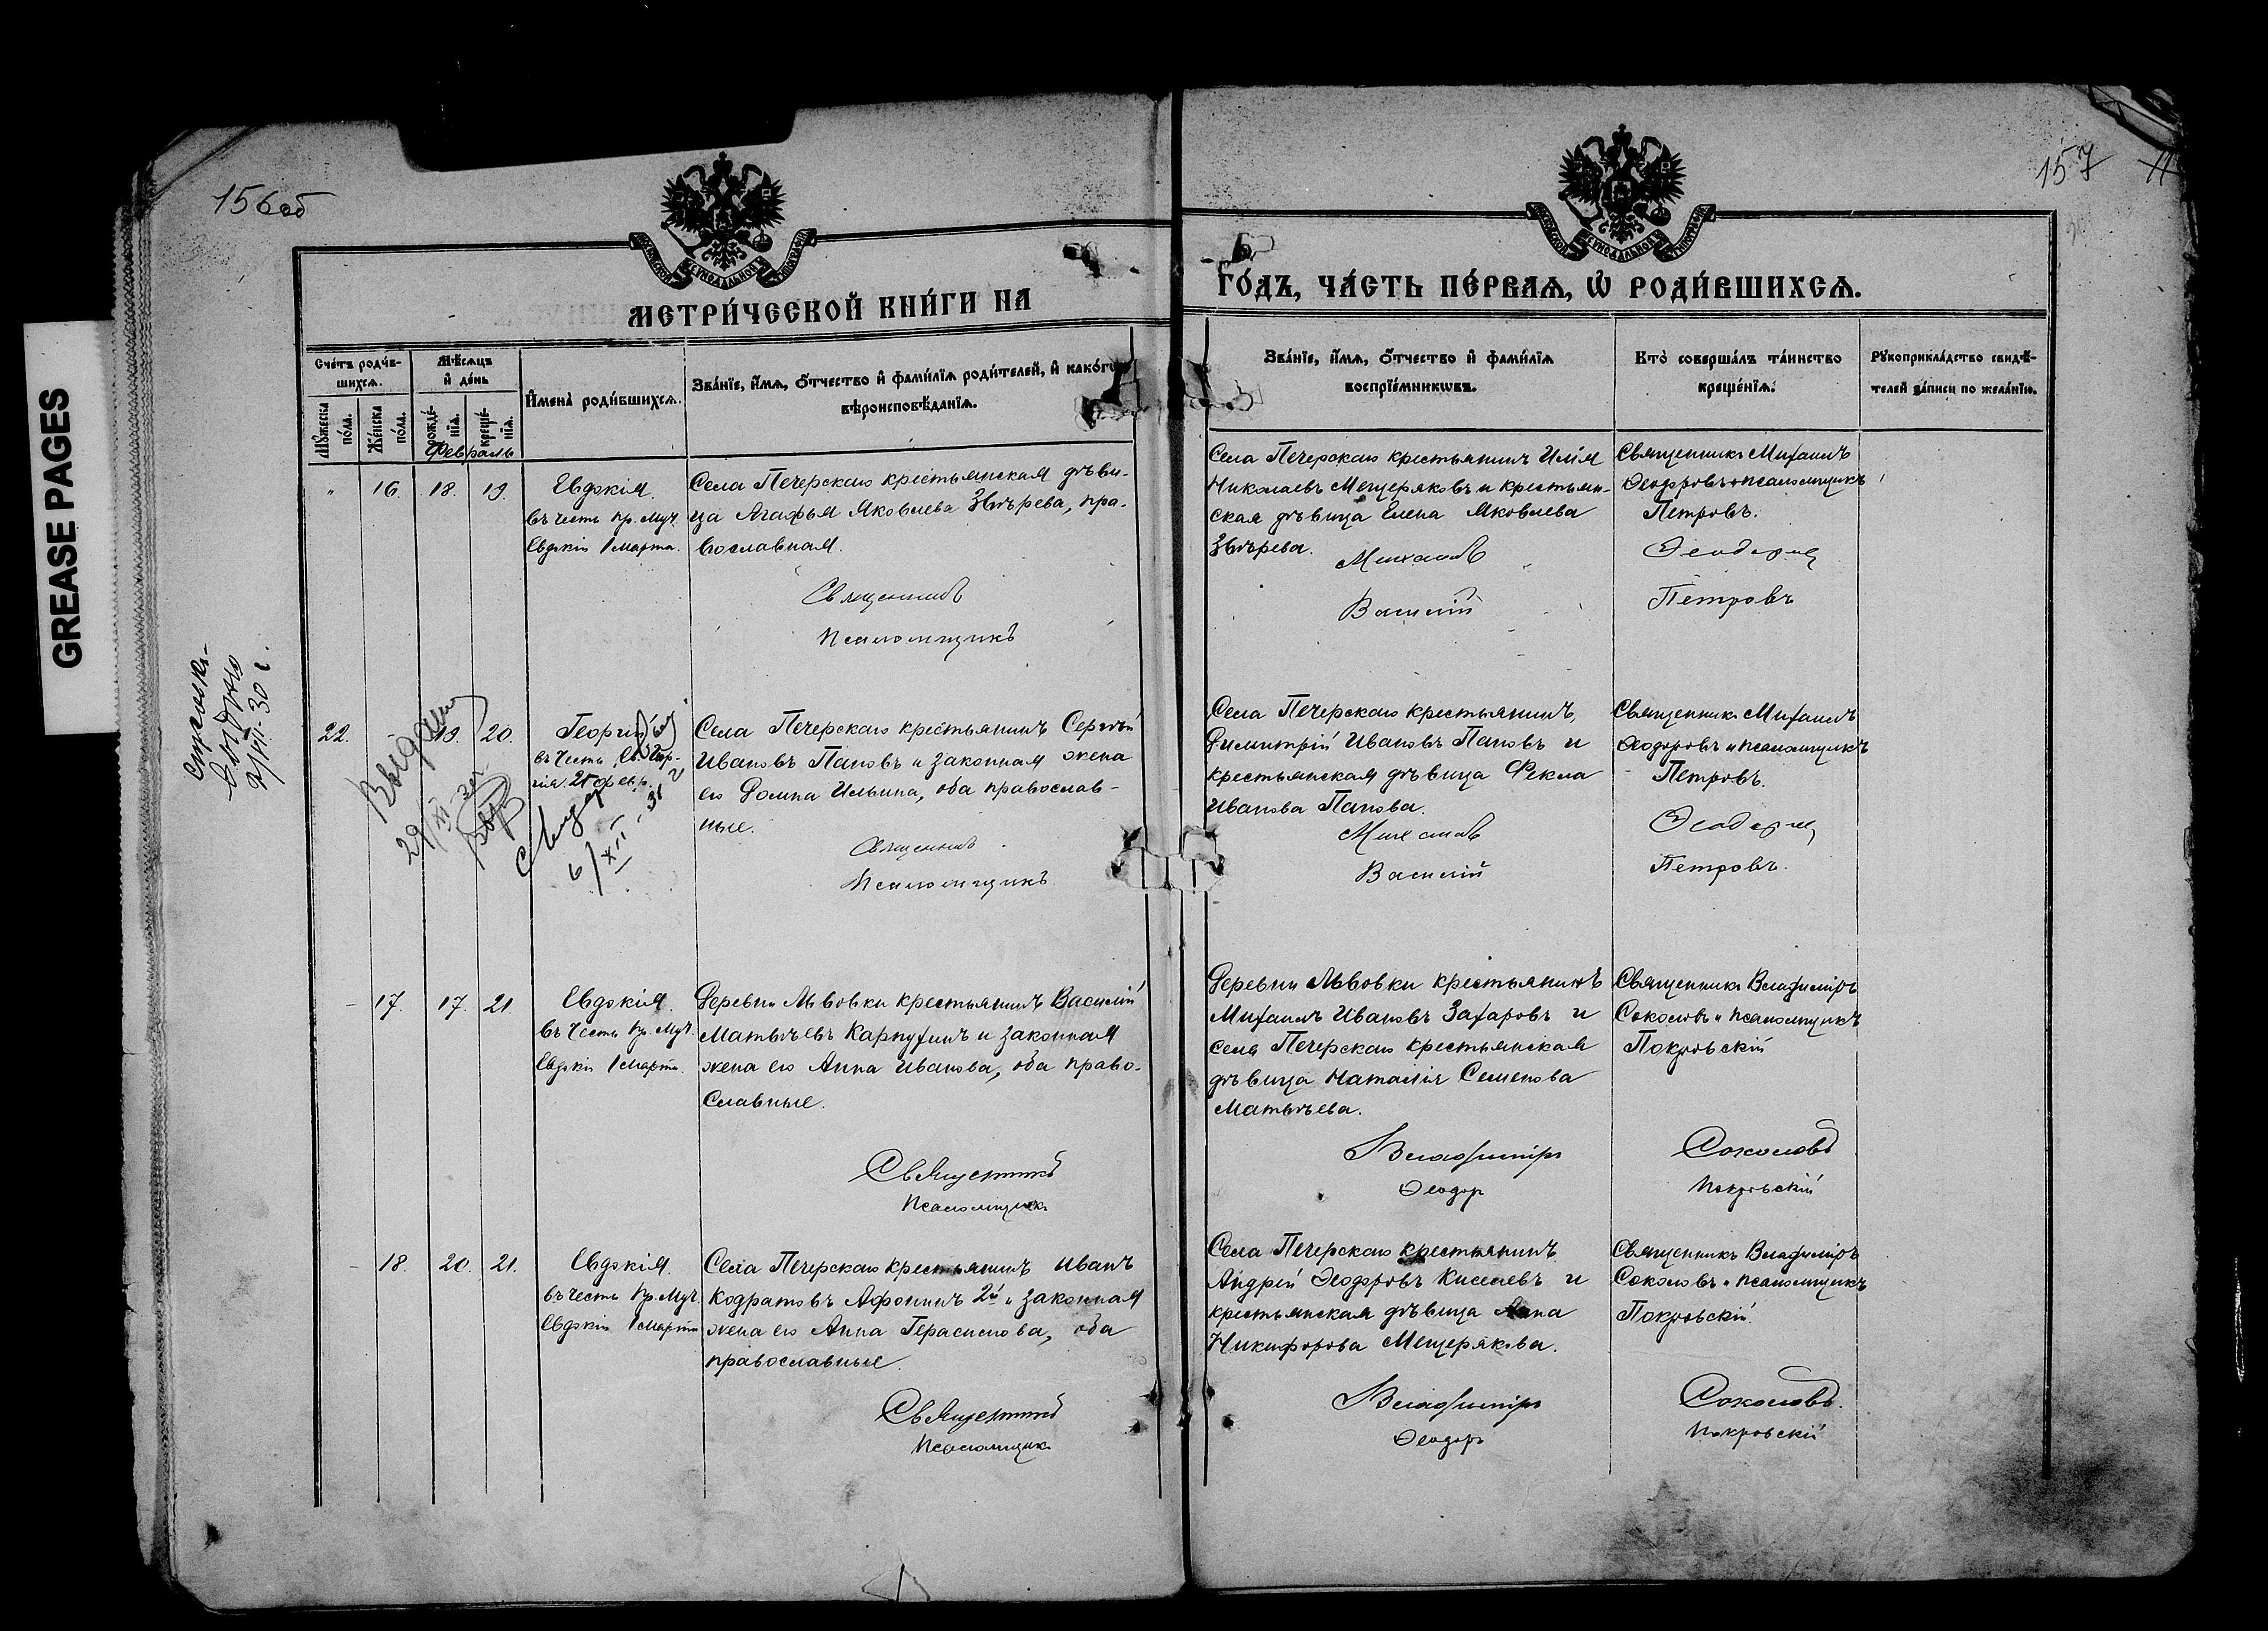 GREASE PAGES
156об
157
МЕТРИ́ЧЕСКОЙ КНИ́ГИ НА
ГО́ДЪ, ЧА́СТЬ ПЕ́РВАѦ, Ѡ҆ РОДИ́ВШИХСѦ.
Сче́тъ роди́в-
шихсѧ.
Мѣ́сѧцъ
и҆ де́нь
Мꙋ́жеска
по́ла.
Же́нска
по́ла.
рожде́-
нїѧ.
креще́-
нїѧ.
И҆мена̀ роди́вшихсѧ.
Зва́нїе, и҆́мѧ, ѻ҆́тчество и҆ фами́лїѧ роди́телей, и҆ како́гѡ
вѣроисповѣ́данїѧ.
Зва́нїе, и҆́мѧ, ѻ҆́тчество и҆ фами́лїѧ
воспрїе́мниковъ.
Кто̀ соверша́лъ та́инство
креще́нїѧ.
Рꙋкоприкла́дство свидѣ́-
телей за́писи по жела́нїю.
Февраль
" 16. 18. 19.
Евдокія.
въ честь пр. муч.
Евдокіи 1 марта.
Села Печерскаго крестьянская дѣви-
ца Агафья Яковлева Звѣрева, пра-
вославная.
Священникъ
Псаломщикъ
Села Печерскаго крестьянинъ Илія
Николаевъ Мещеряковъ и крестьян-
ская дѣвица Елена Яковлева
Звѣрева.
Михаилъ
Василій
Священникъ Михаилъ
Ѳеодоровъ и псаломщикъ
Петровъ.
Петровъ
22. - 19. 20.
Георгій
въ честь Св. Геор-
гія.
Выдан
6/XII - 31
Села Печерскаго крестьянинъ Сергѣй
Ивановъ Паповъ и законная жена
его Домна Ильина, оба православ-
ные.
Священникъ
Псаломщикъ
Села Печерскаго крестьянинъ
Димитрій Ивановъ Паповъ и
крестьянская дѣвица Фекла
Иванова Папова.
Михаилъ
Василій
Священникъ Михаилъ
Ѳеодоровъ и псаломщикъ
Петровъ.
Петровъ.
- 17. 17. 21.
Евдокія.
въ честь пр. муч.
Евдокіи 1 марта.
Деревни Львовки крестьянинъ Василій
Матвѣевъ Карпухинъ и законная
жена его Анна Иванова, оба право-
славные.
Священникъ
Псаломщикъ
Деревни Львовки крестьянинъ
Михаилъ Ивановъ Захаровъ и
села Печерскаго крестьянская
дѣвица Наталія Семенова
Матвѣева.
Владиміръ
Ѳеодоръ
Священникъ Владиміръ
Соколовъ и псаломщикъ
Покровскій
Соколовъ
Покровскій
- 18. 20. 21.
Евдокія.
въ честь пр. муч.
Евдокіи 1 марта
Села Печерскаго крестьянинъ Иванъ
Кодратовъ Афонинъ 2й и законная
жена его Анна Герасимова, оба
православные.
Священникъ
Псаломщикъ
Села Печерскаго крестьянинъ
Андрей Ѳеодоровъ Киселевъ и
крестьянская дѣвица Анна
Никифорова Мещерякова.
Владиміръ
Ѳеодоръ
Священникъ Владиміръ
Соколовъ и псаломщикъ
Покровскій.
Соколовъ.
Покровскій